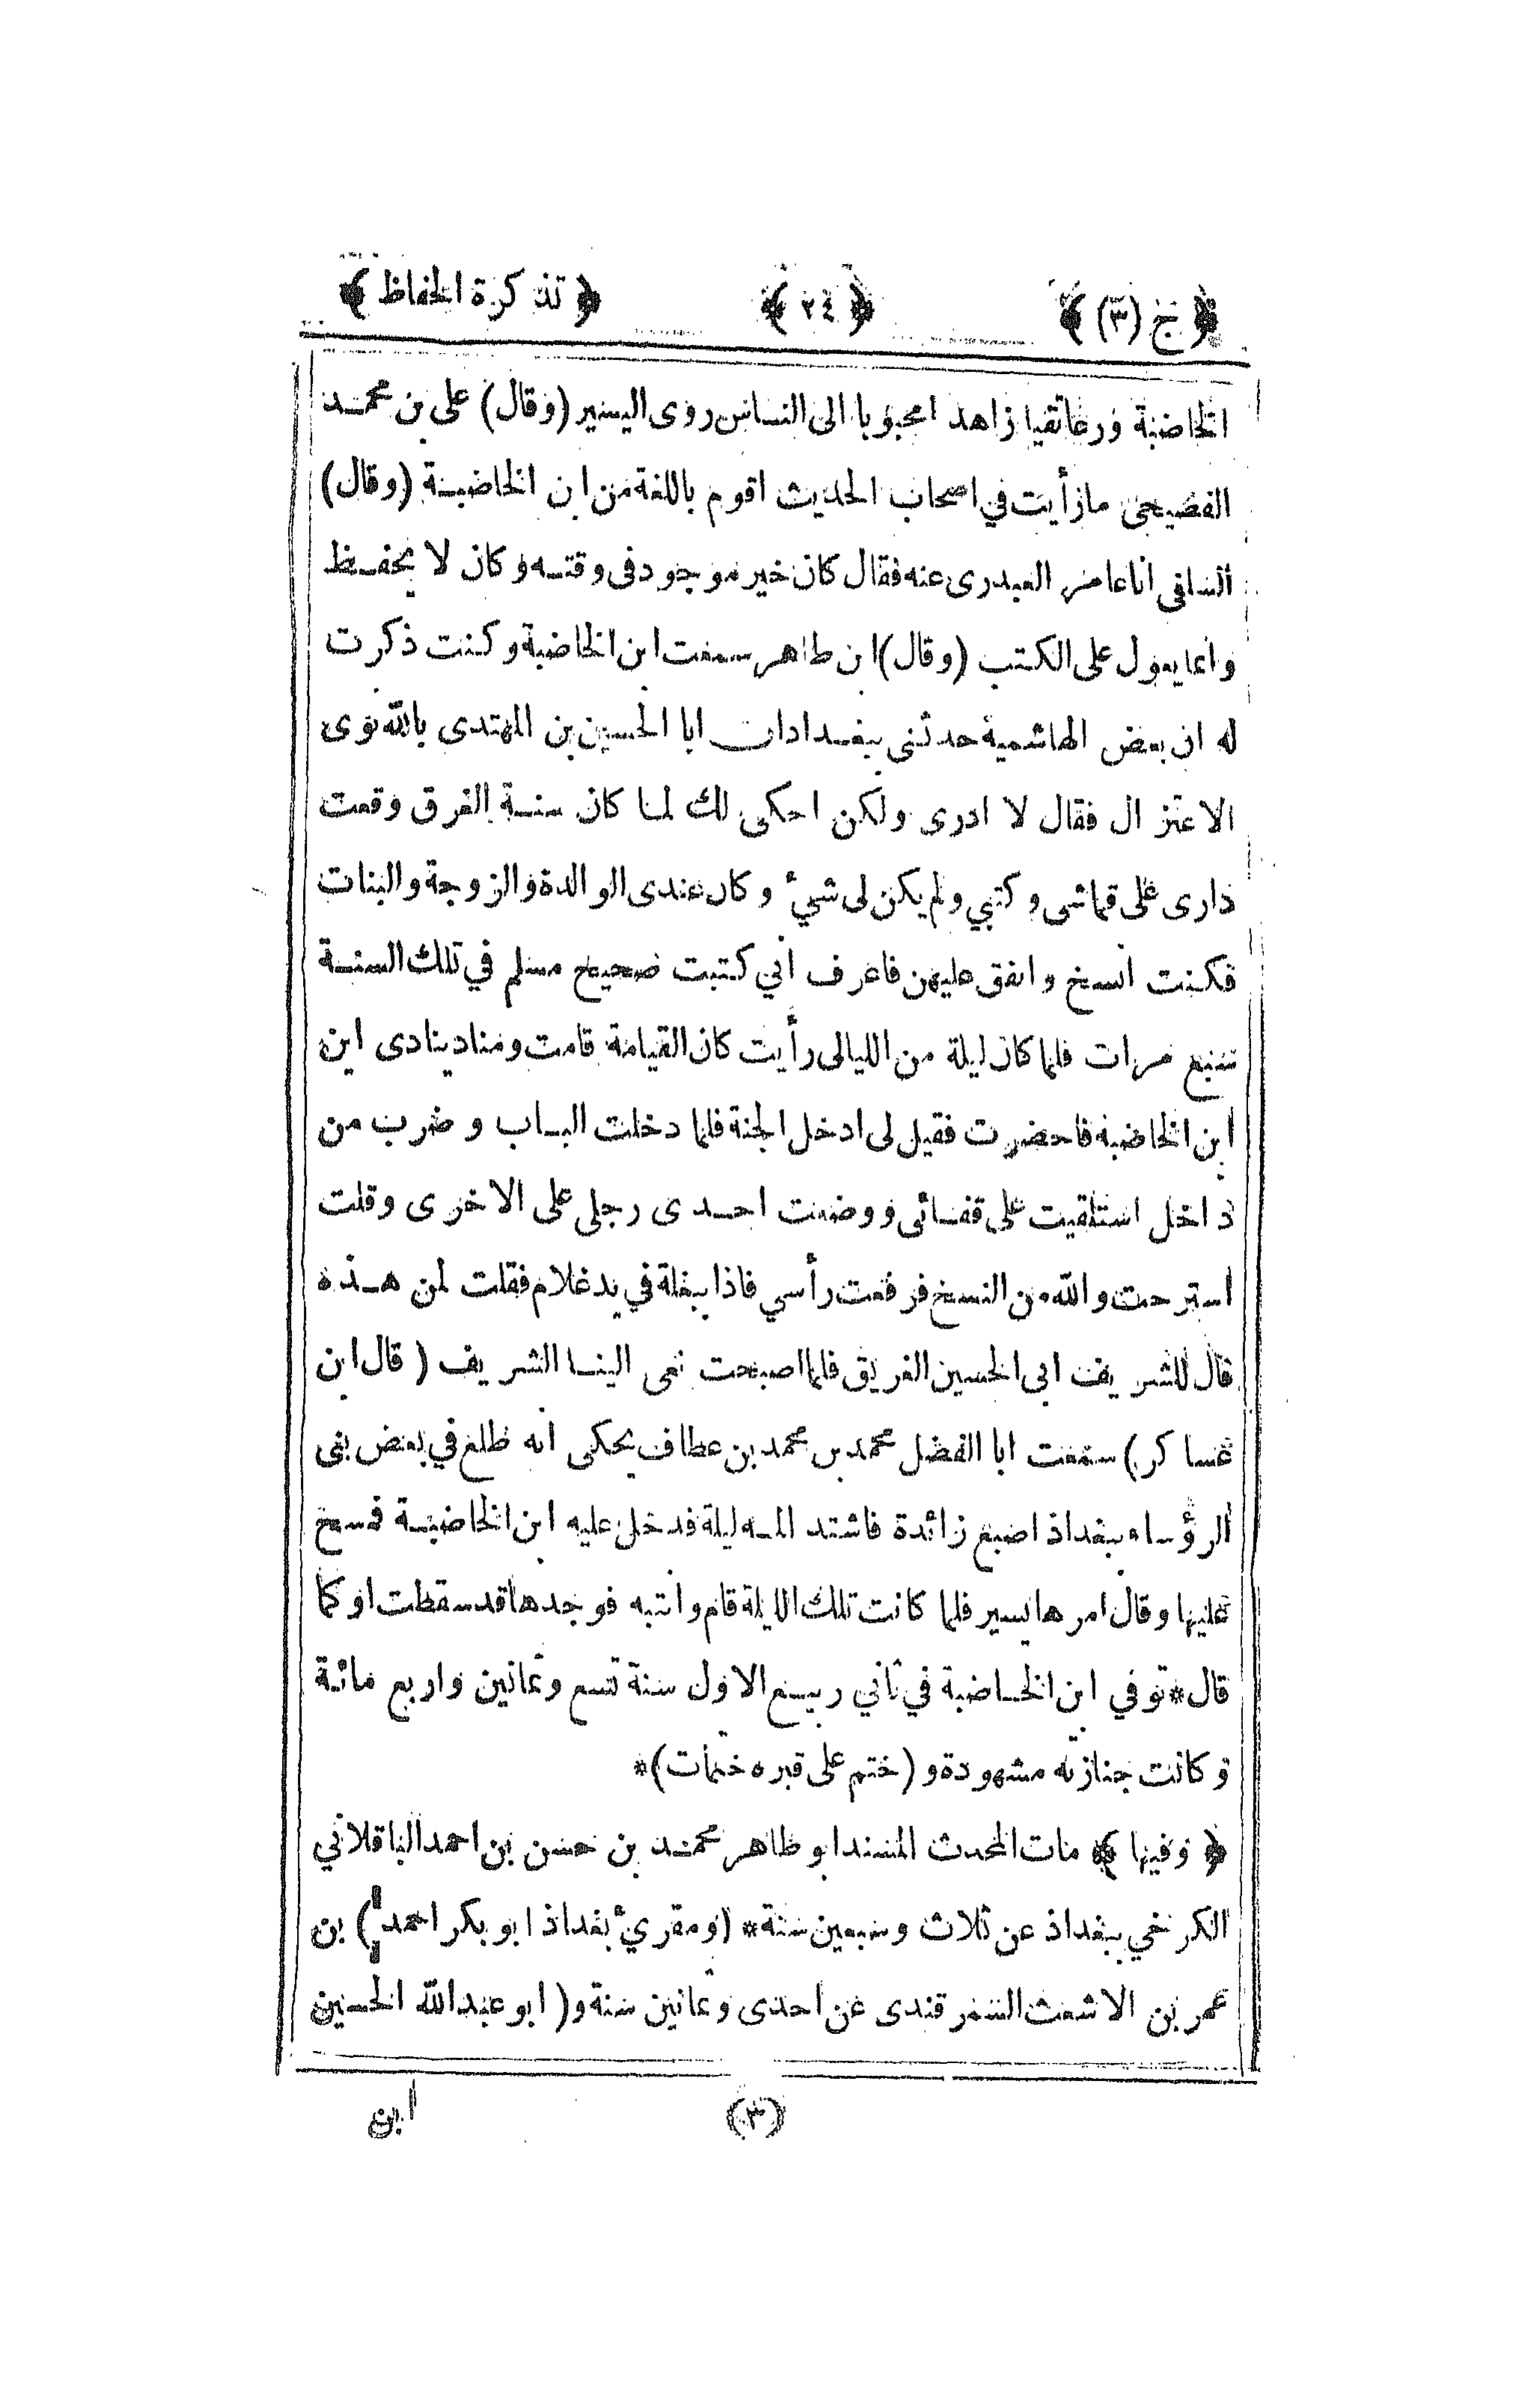 ﴿ ج (٣) ﴾ ﴿ ٢٤ ﴾ ﴿ تذكرة الحفاظ ﴾
الخاضبة ورعا تقيا زاهدا محبوبا الى الناس روى اليسير (وقال) على بن محمد
الفصيحى ما رأيت في اصحاب الحديث اقوم باللغة من ابن الخاضبة (وقال)
السلفى انا عامر العبدرى عنه فقال كان خير موجود فى وقته وكان لا يحفظ
وانما يعول على الكتب (وقال) ابن طاهر سمعت ابن الخاضبة وكنت ذكرت
له ان بعض الهاشمية حدثنى ببغداد ان ابا الحسين بن المهتدى بالله نوى
الاعتزال فقال لا ادرى ولكن احكى لك لما كان سنة الغرق وقعت
دارى على قماشى وكتبي ولم يكن لى شئ وكان عندى الوالدة والزوجة والبنات
فكنت انسخ وانفق عليهن فاعرف انى كتبت صحيح مسلم في تلك السنة
سبع مرات فلما كان ليلة من الليالى رأيت كان القيامة قامت ومناد ينادى اين
ابن الخاضبة فاحضرت فقيل لى ادخل الجنة فلما دخلت الباب وضرب من
داخل استلقيت على قفائى ووضعت احدى رجلى على الاخرى وقلت
استرحت والله من النسخ فرفعت رأسي فاذا ببغلة في يد غلام فقلت لمن هذه
قال للشريف ابى الحسين الغريق فلما اصبحت نعى الينا الشريف (قال ابن
عساكر) سمعت ابا الفضل محمد بن محمد بن عطاف يحكى انه طلع في بعض بنى
الرؤساء ببغداد اصبع زائدة فاشتد المه ليلة فدخل عليه ابن الخاضبة فمسح
عليها وقال امرها يسير فلما كانت تلك الليلة قام وانتبه فوجدها قد سقطت او كما
قال* توفي ابن الخاضبة في ثاني ربيع الاول سنة تسع وثمانين واربع مائة
وكانت جنازته مشهودة و (ختم على قبره ختمات)*
﴿ وفيها ﴾ مات المحدث المسند ابو طاهر محمد بن حسن بن احمد الباقلاني
الكرخي ببغداد عن ثلاث وسبعين سنة* (ومقرئ بغداد ابو بكر احمد) بن
عمر بن الاشعث السمرقندى عن احدى وثمانين سنة و (ابو عبد الله الحسين
(٣) ابن